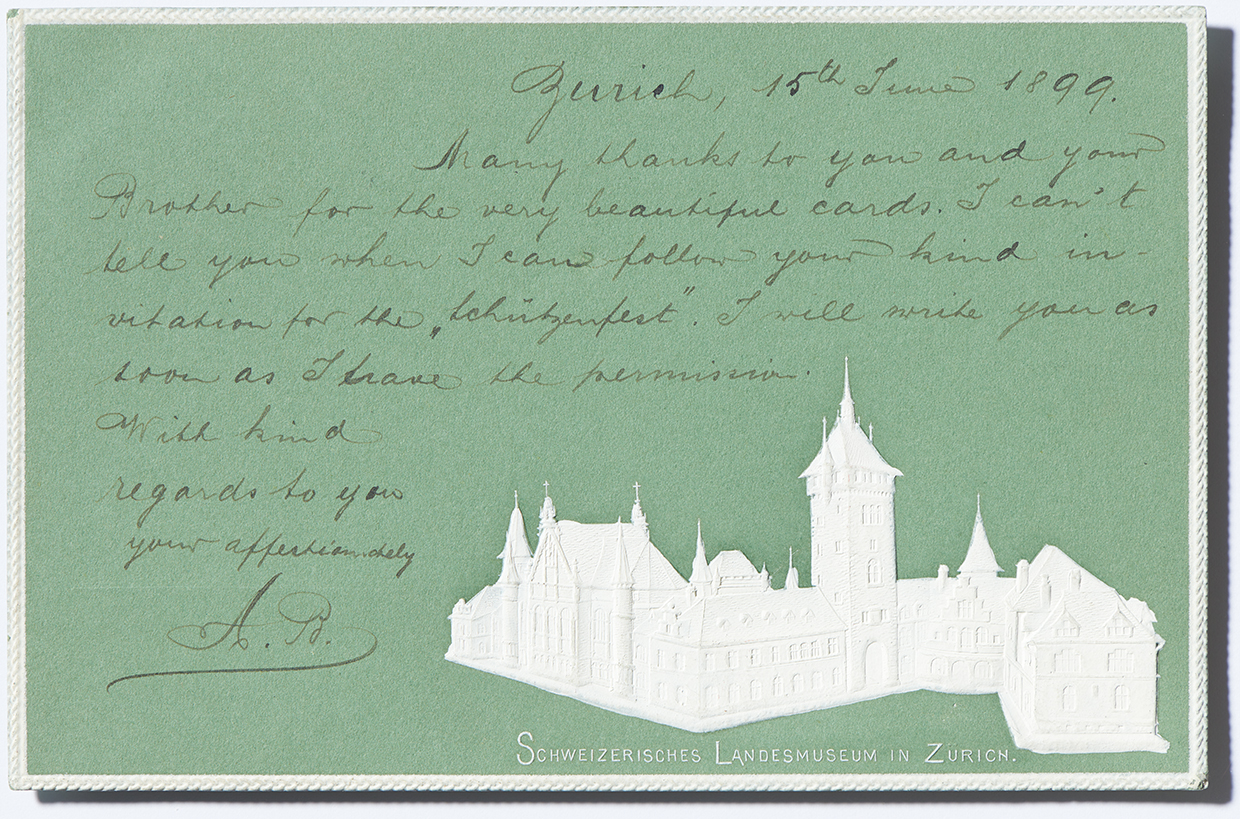 Zurich, 15th June 1899.
Many thanks to you and your
Brother for the very beautiful cards. I can't
tell you when I can follow your kind in-
vitation for the „Schützenfest". I will write you as
soon as I have the permission.
With kind
regards to you
your affectionately
A. B.
SCHWEIZERISCHES LANDESMUSEUM IN ZÜRICH.